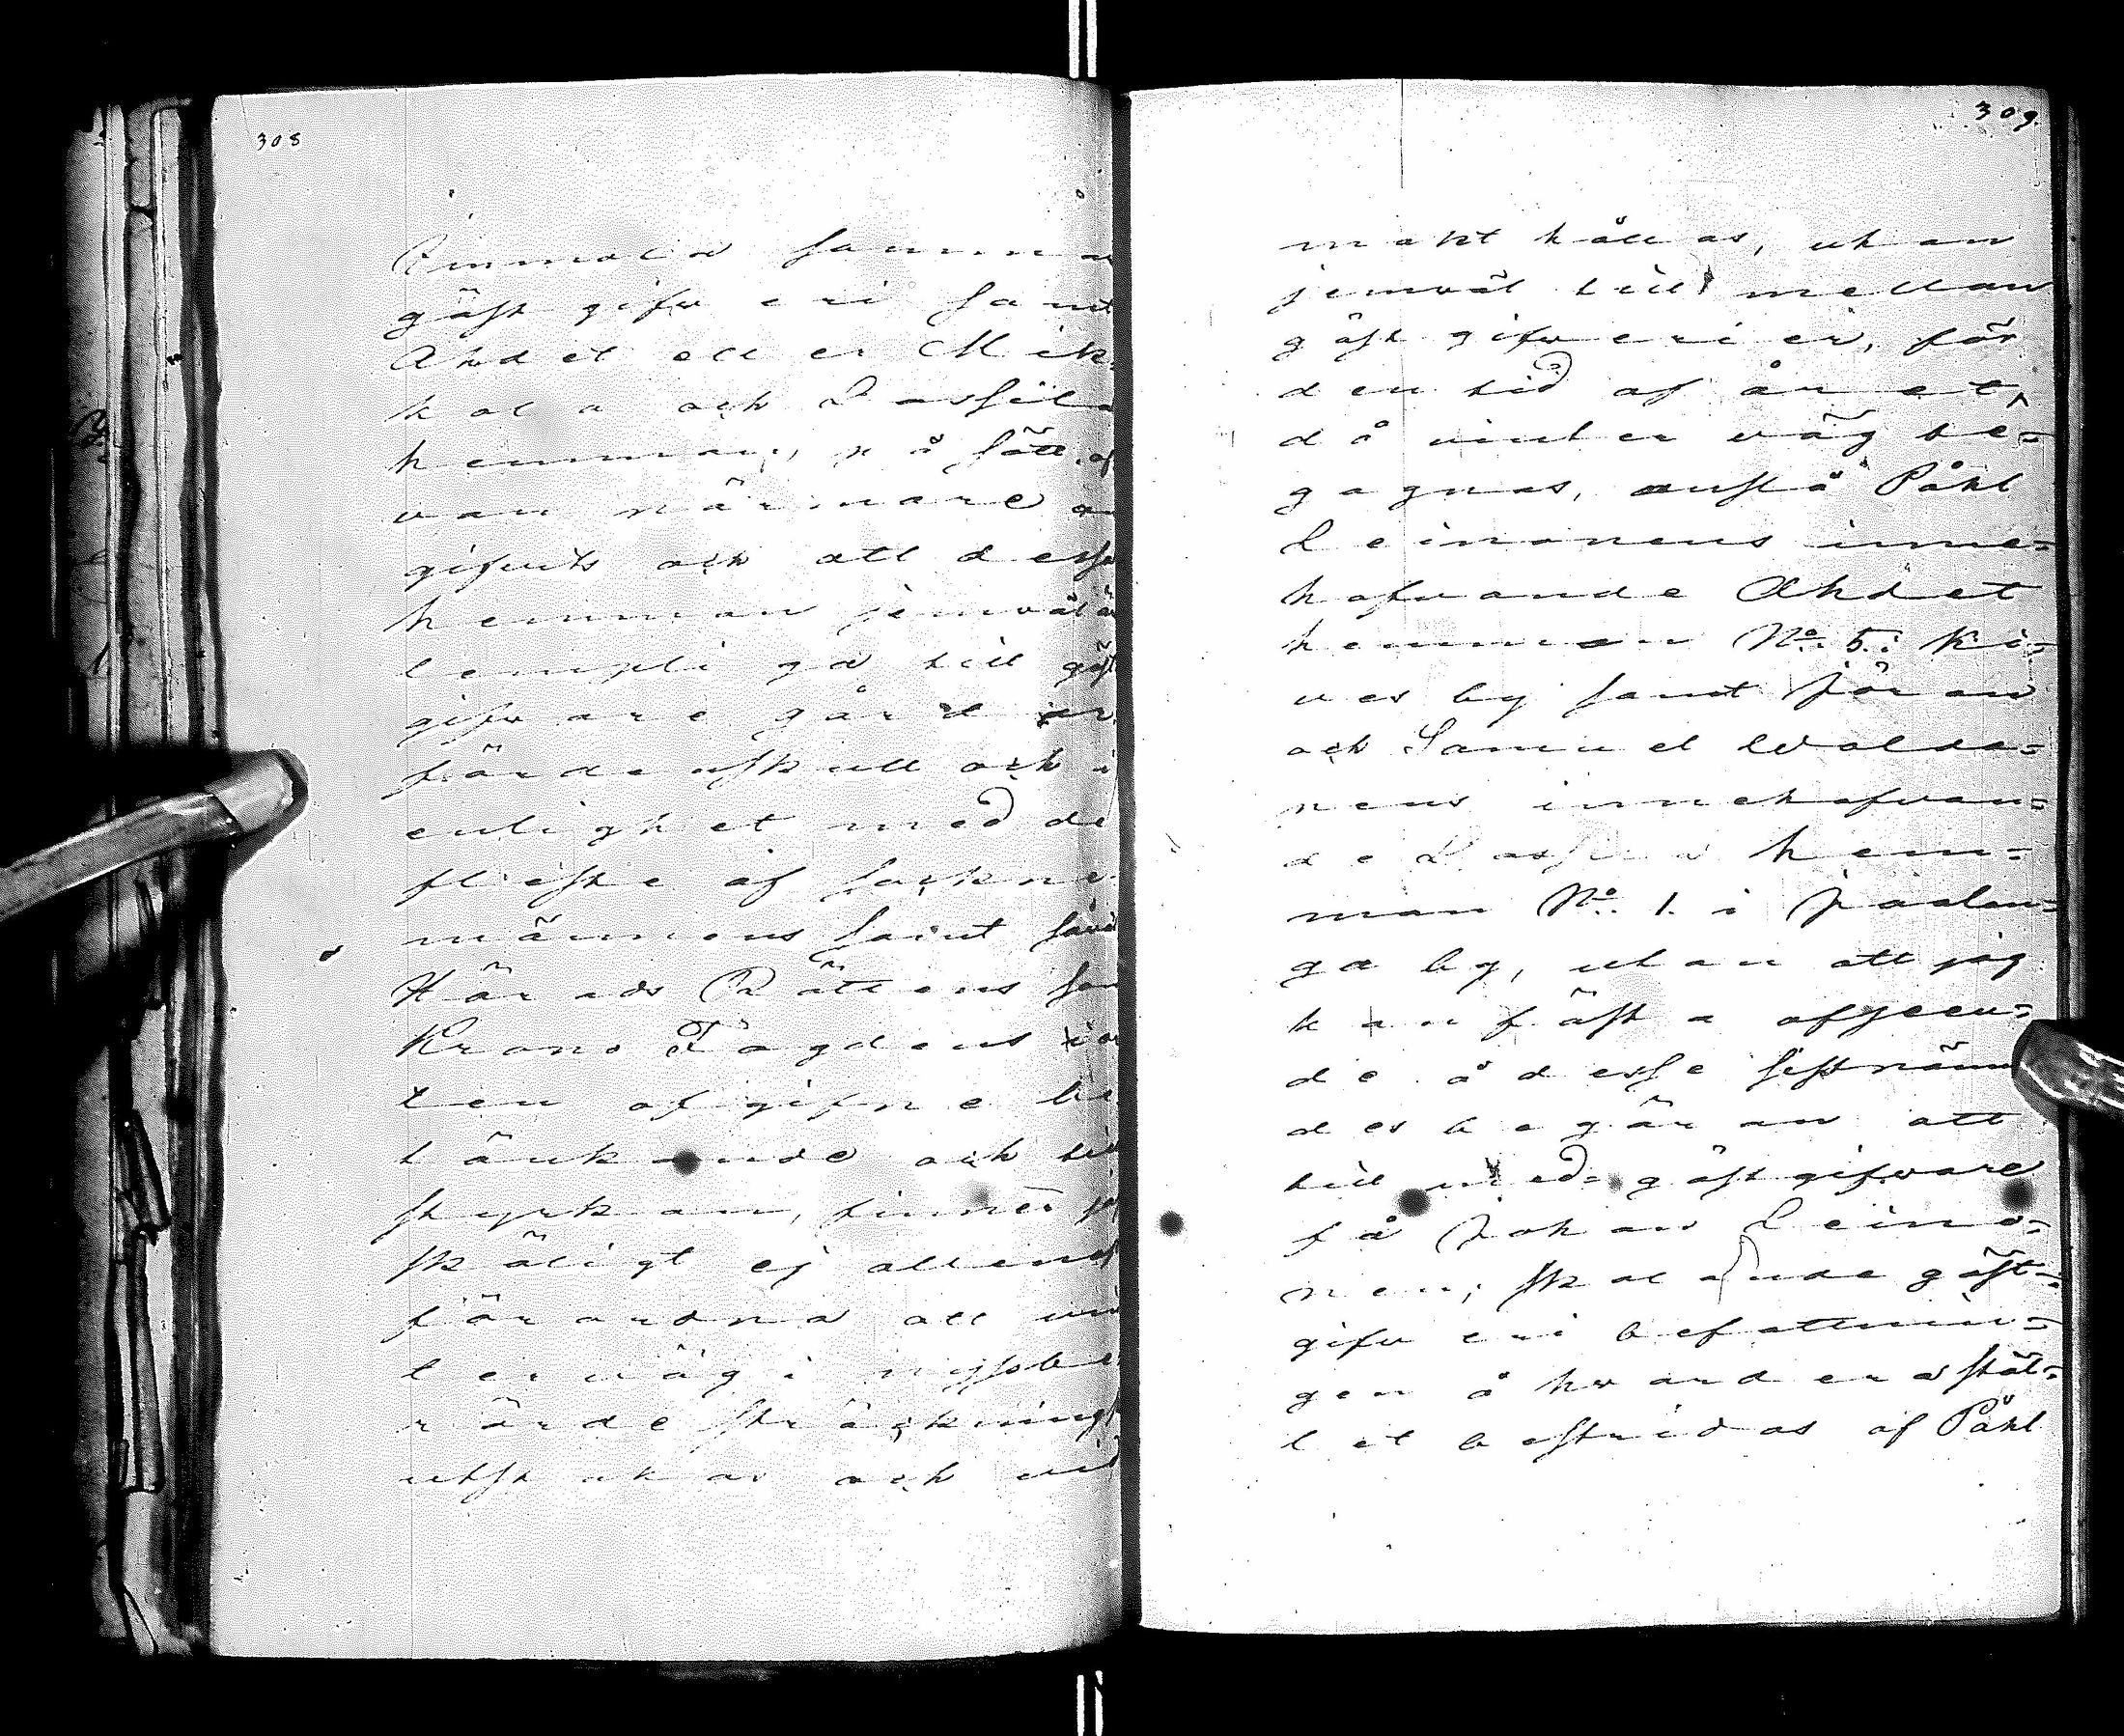 308
gästgifveri samt
Ahdet eller Mik
kola och Lassila
hemman, på sätt of
van närmare a
gifvits och att desse
hemman jemväl ä
lempliga till gäst
gifvare gård
förde uskull och i
enlighet med de
fleste af sockne
männens samt såväl
Härads Rättens som
Krono Fogdens
ten afgifne be
tänkande och til
styrkan, finner ja
skäligt ej allenas
förordna att vin
terväg i nyssbe
rörde sträckning
utstakas och vid
309.
makt hållas, utan
jemväl till mellan
gästgifverier, för
den tid af året,
då vinter väg be=
gagnas, anslå Påhl
Leinonens inne=
hafvande Ahdet
hemman No. 5. i Ki=
ves by samt Jöran
och Samuel Wolda=
nens innehafvan=
de Lassila hem=
man No. 1. i Jaalan=
ga by, utan att jag
kan fästa afseen=
de å desse sistnäm
des begäran att
till med-gästgifvare
få Johan Leino=
nen; skolande gäst=
gifveri befattnin=
gen å hvardera stäl=
let bestridas af Påhl